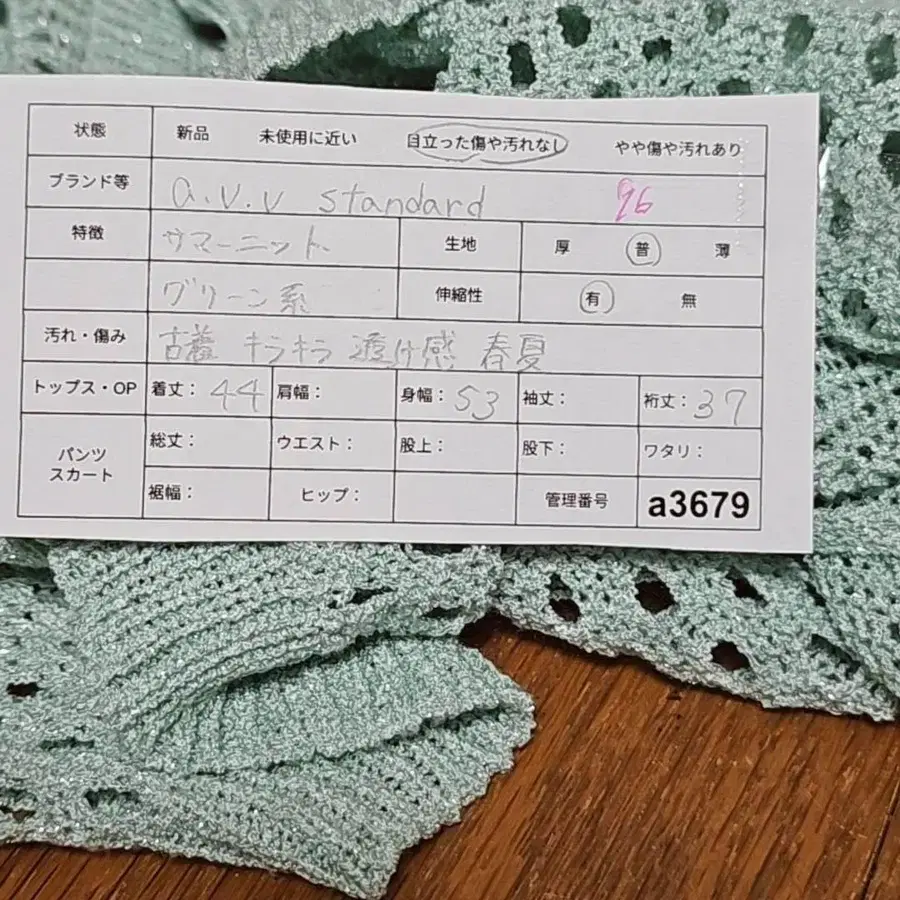 状態 新品 未使用に近い 目立った傷や汚れなし やや傷や汚れあり
ブランド等 a.v.v standard 26
特徴 サマーニット 生地 厚 普 薄
グリーン系 伸縮性 有 無
汚れ・傷み 古着 キラキラ 透け感 春夏
トップス・OP 着丈: 44 肩幅: 身幅: 53 袖丈: 裄丈: 37
パンツ スカート 総丈: ウエスト: 股上: 股下: ワタリ:
裾幅: ヒップ: 管理番号 a3679